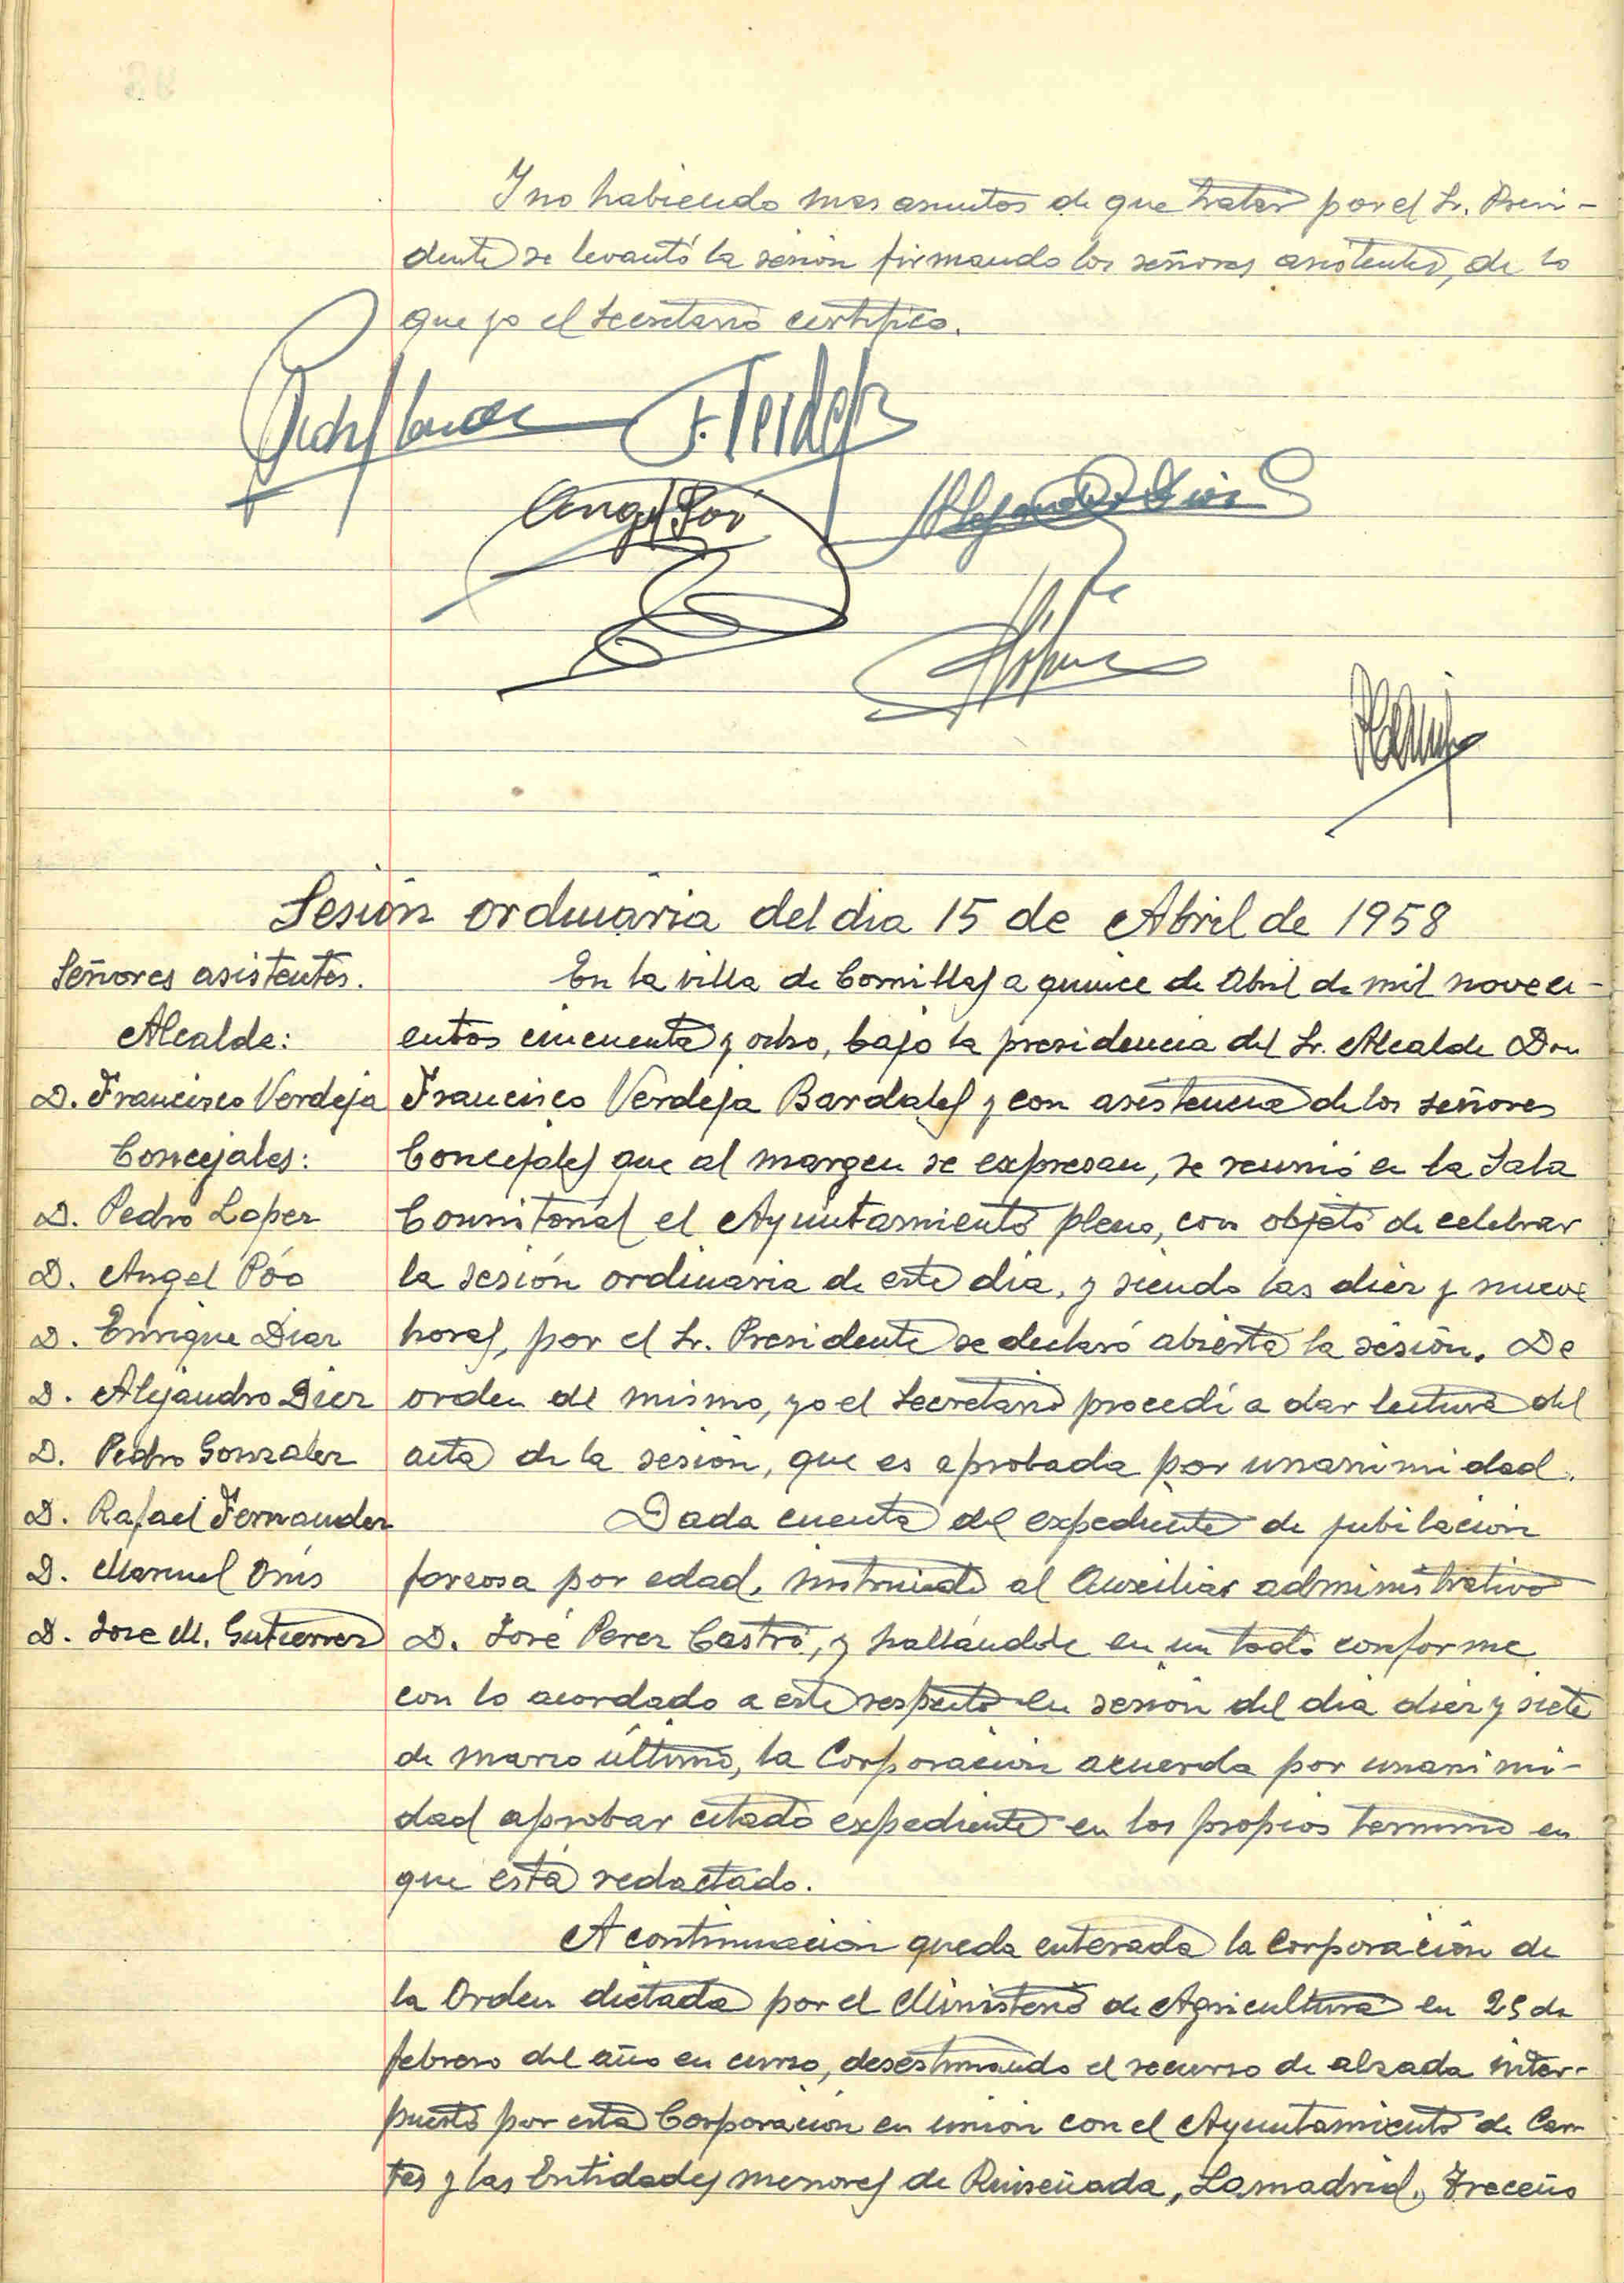 Y no habiendo mas asuntos de que tratar por el Sr. Presi-
dente se levantó la sesión firmando los señores asistentes, de lo
que yo el Secretario certifico.
F. Verdeja
Angel Póo
Alejandro Diez
Sesión ordinaria del dia 15 de Abril de 1958
Señores asistentes.
Alcalde:
D. Francisco Verdeja
Concejales:
D. Pedro Lopez
D. Angel Póo
D. Enrique Diaz
D. Alejandro Diez
D. Pedro Gonzalez
D. Rafael Fernandez
D. Manuel Onis
D. Jose M. Gutierrez
En la villa de Comillas a quince de Abril de mil noveci-
entos cincuenta y ocho, bajo la presidencia del Sr. Alcalde Don
Francisco Verdeja Bardales y con asistencia de los señores
Concejales que al margen se expresan, se reunió en la Sala
Consistorial el Ayuntamiento pleno, con objeto de celebrar
la sesión ordinaria de este dia, y siendo las diez y nueve
horas, por el Sr. Presidente se declaró abierta la sesión. De
orden del mismo, yo el Secretario procedí a dar lectura del
acta de la sesión, que es aprobada por unanimidad.
Dada cuenta del expediente de jubilación
forzosa por edad, instruido al Auxiliar administrativo
D. José Perez Castro, y hallándole en un todo conforme
con lo acordado a este respecto en sesión del dia diez y siete
de marzo último, la Corporación acuerda por unanimi-
dad aprobar citado expediente en los propios termino en
que está redactado.
A continuación queda enterada la Corporación de
la Orden dictada por el Ministerio de Agricultura en 25 de
febrero del año en curso, desestimando el recurso de alzada inter-
puesto por esta Corporación en unión con el Ayuntamiento de Car-
tes y las Entidades menores de Ruiseñada, Lamadrid, Treceño